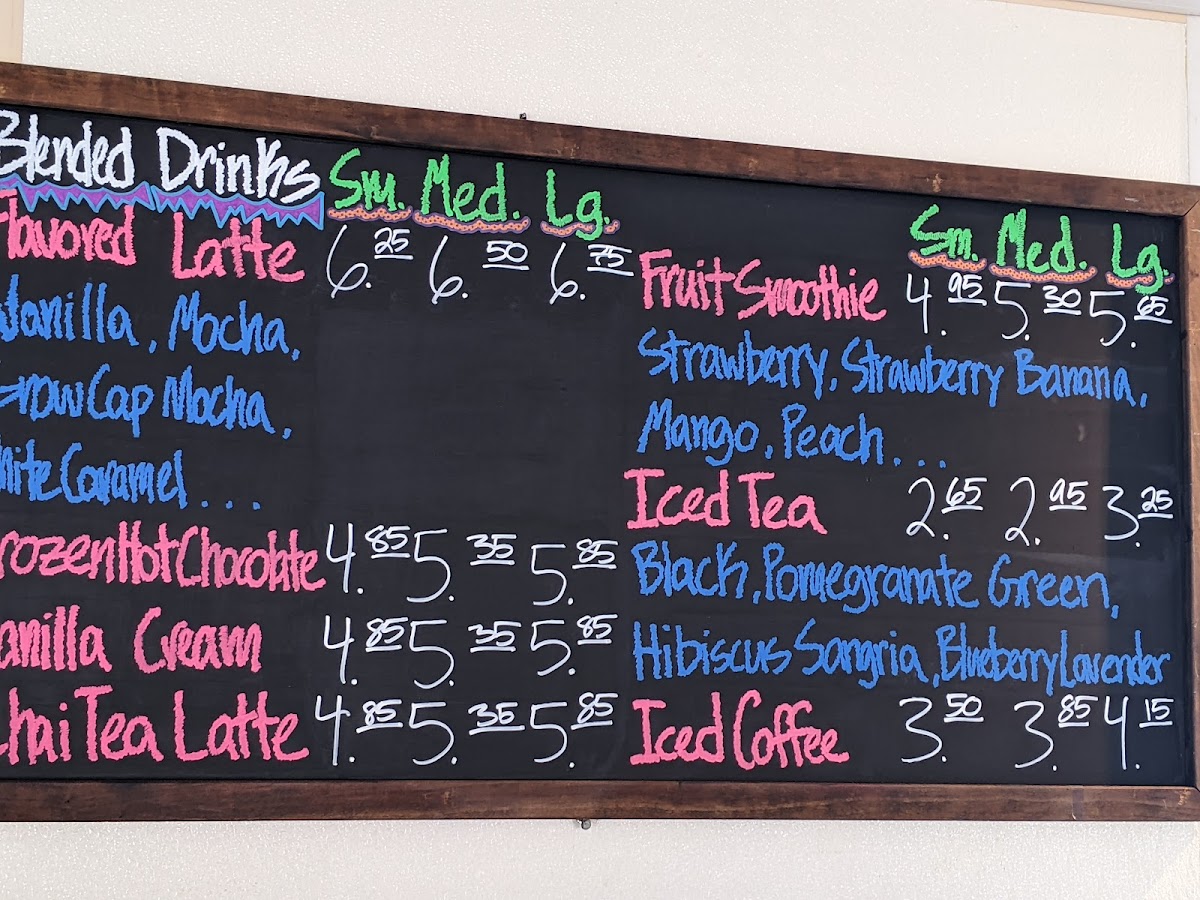 Blended Drinks Sm. Med. Lg.
Flavored Latte 6.25 6.50 6.75
Vanilla, Mocha,
Mocha,
Caramel...
Frozen Hot Chocolate 4.85 5.35 5.85
Vanilla Cream 4.85 5.35 5.85
Chai Tea Latte 4.85 5.35 5.85
Sm. Med. Lg.
Fruit Smoothie 4.95 5.30 5.65
Strawberry, Strawberry Banana,
Mango, Peach...
Iced Tea 2.65 2.95 3.25
Black, Pomegranate Green,
Hibiscus Sangria, Blueberry Lavender
Iced Coffee 3.50 3.85 4.15